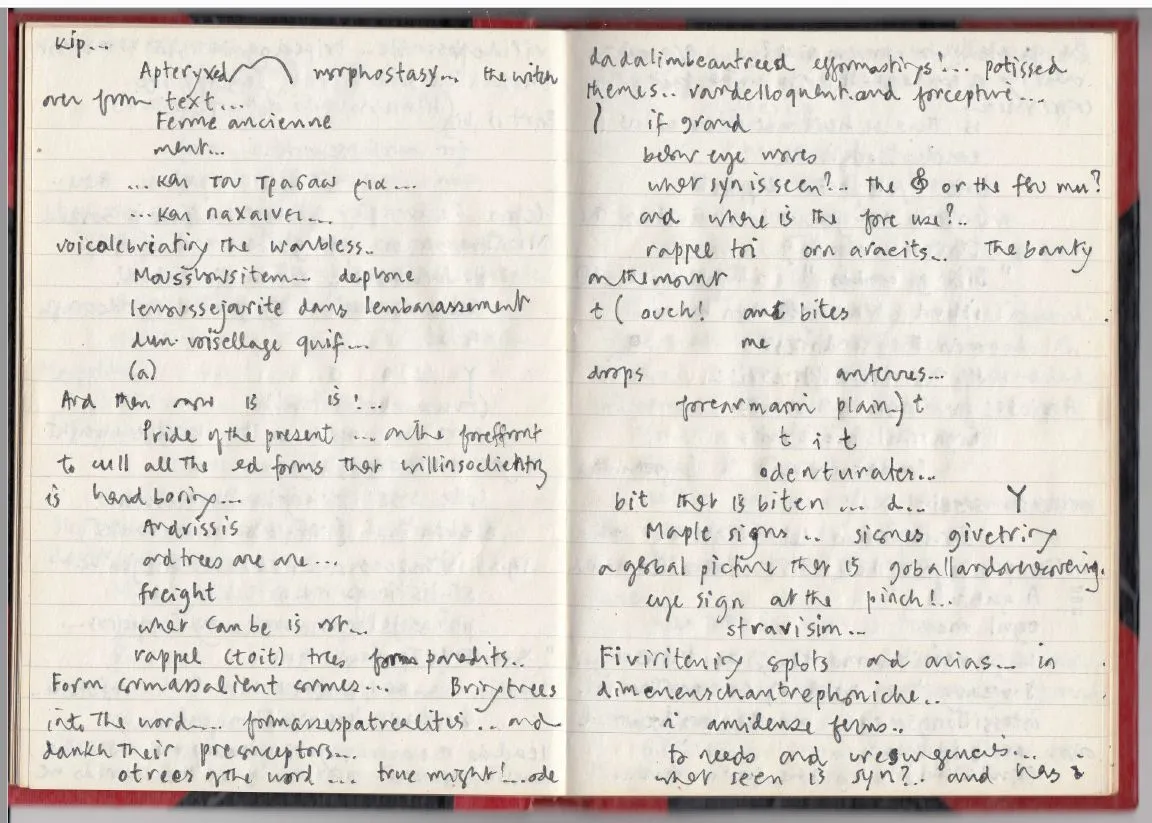 kip...
Apteryxed morphostasy... the witch
over from text...
Ferme ancienne
ment...
... και του τρασαω για ...
... και παχαινει...
voicalebviating the wanbless..
Mousshowsitem... dephone
lemoussejourite dans lembarassement
dun voisellage quif...
(a)
And then now is is!...
Pride of the present ... on the forefront
to cull all the ed forms that
is hard boring...
Andrissis
ard trees are are...
freight
what can be is not...
rappel (toit) trees forms paredits..
Form cormassalient cormes... Boring trees
into the word... formassespatrealitis... and
danken their preconceptors...
otrees of the word ... true might!...ode
dadalimbeantreed efformastings!... potissed
themes.. vandelloquent.and forcepture...
if grand
below eye waves
what syn is seen?.. the or the feu mu?
and where is the fore use?..
rappel toi orn aracits... the banty
on the mount
t ( ouch! ant bites
me
drops antennes...
forearmami plain) t
t i t
odenturater...
bit that is biten ... d... Y
Maple signs... sicones givetring
a gerbal picture that is goballandovercovering.
eye sign at the pinch!..
stravisim...
Fiviriteniry splots and anias... in
dimenenschantrephoniche...
n' amidense ferns..
to needs and uresurgencis...
what seen is syn?.. and has